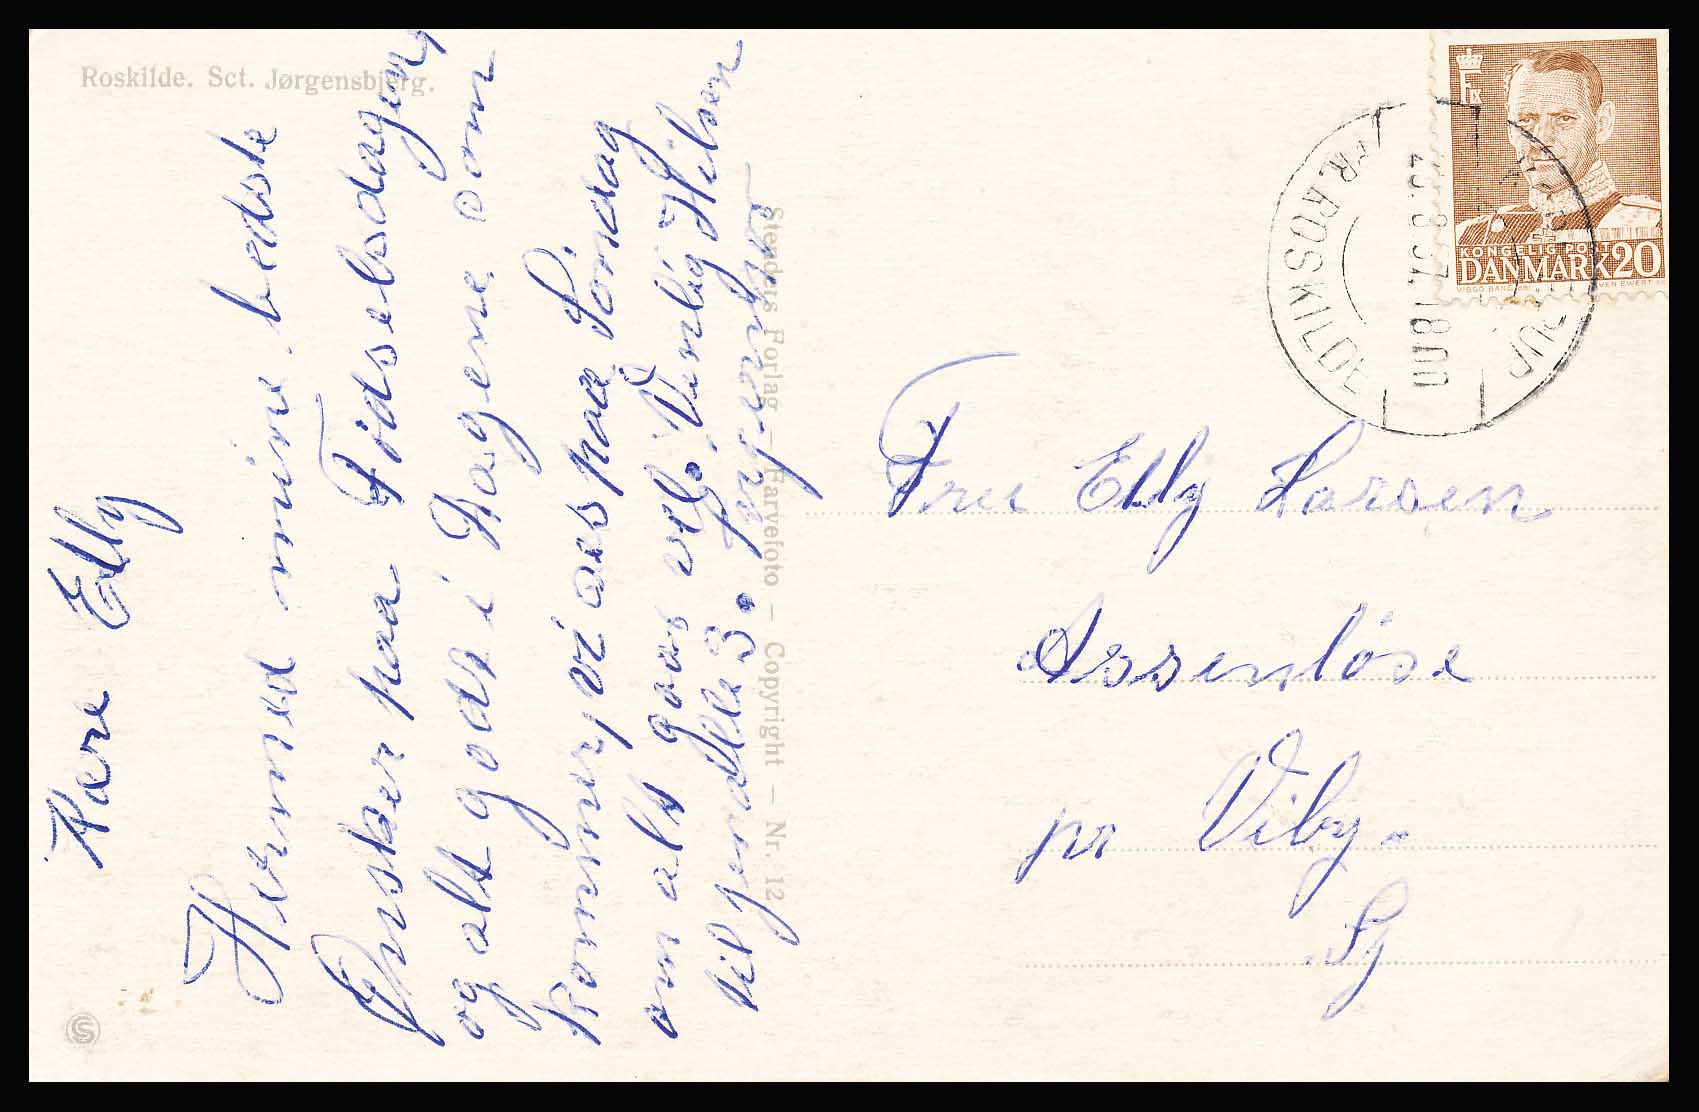 Roskilde. Sct. Jørgensbjerg.
Kære Elly
Hermed mine bedste
Ønsker paa Födselsdagen
og alt godt i Dagene som
kommer, vi ses paa Söndag
om alt gaar vel. Venlig Hilsen
til jer alle 3. Jørgensen
Stenders Forlag – Farvefoto – Copyright – Nr. 12
S
FR. ROSKILDE
23.8.57.18
RUP
F IX
KONGELIG POST
DANMARK 20
VIGGO BANG
SVEN EWERT
Fru Elly Larsen
Assenlöse
pr Viby.
Sj